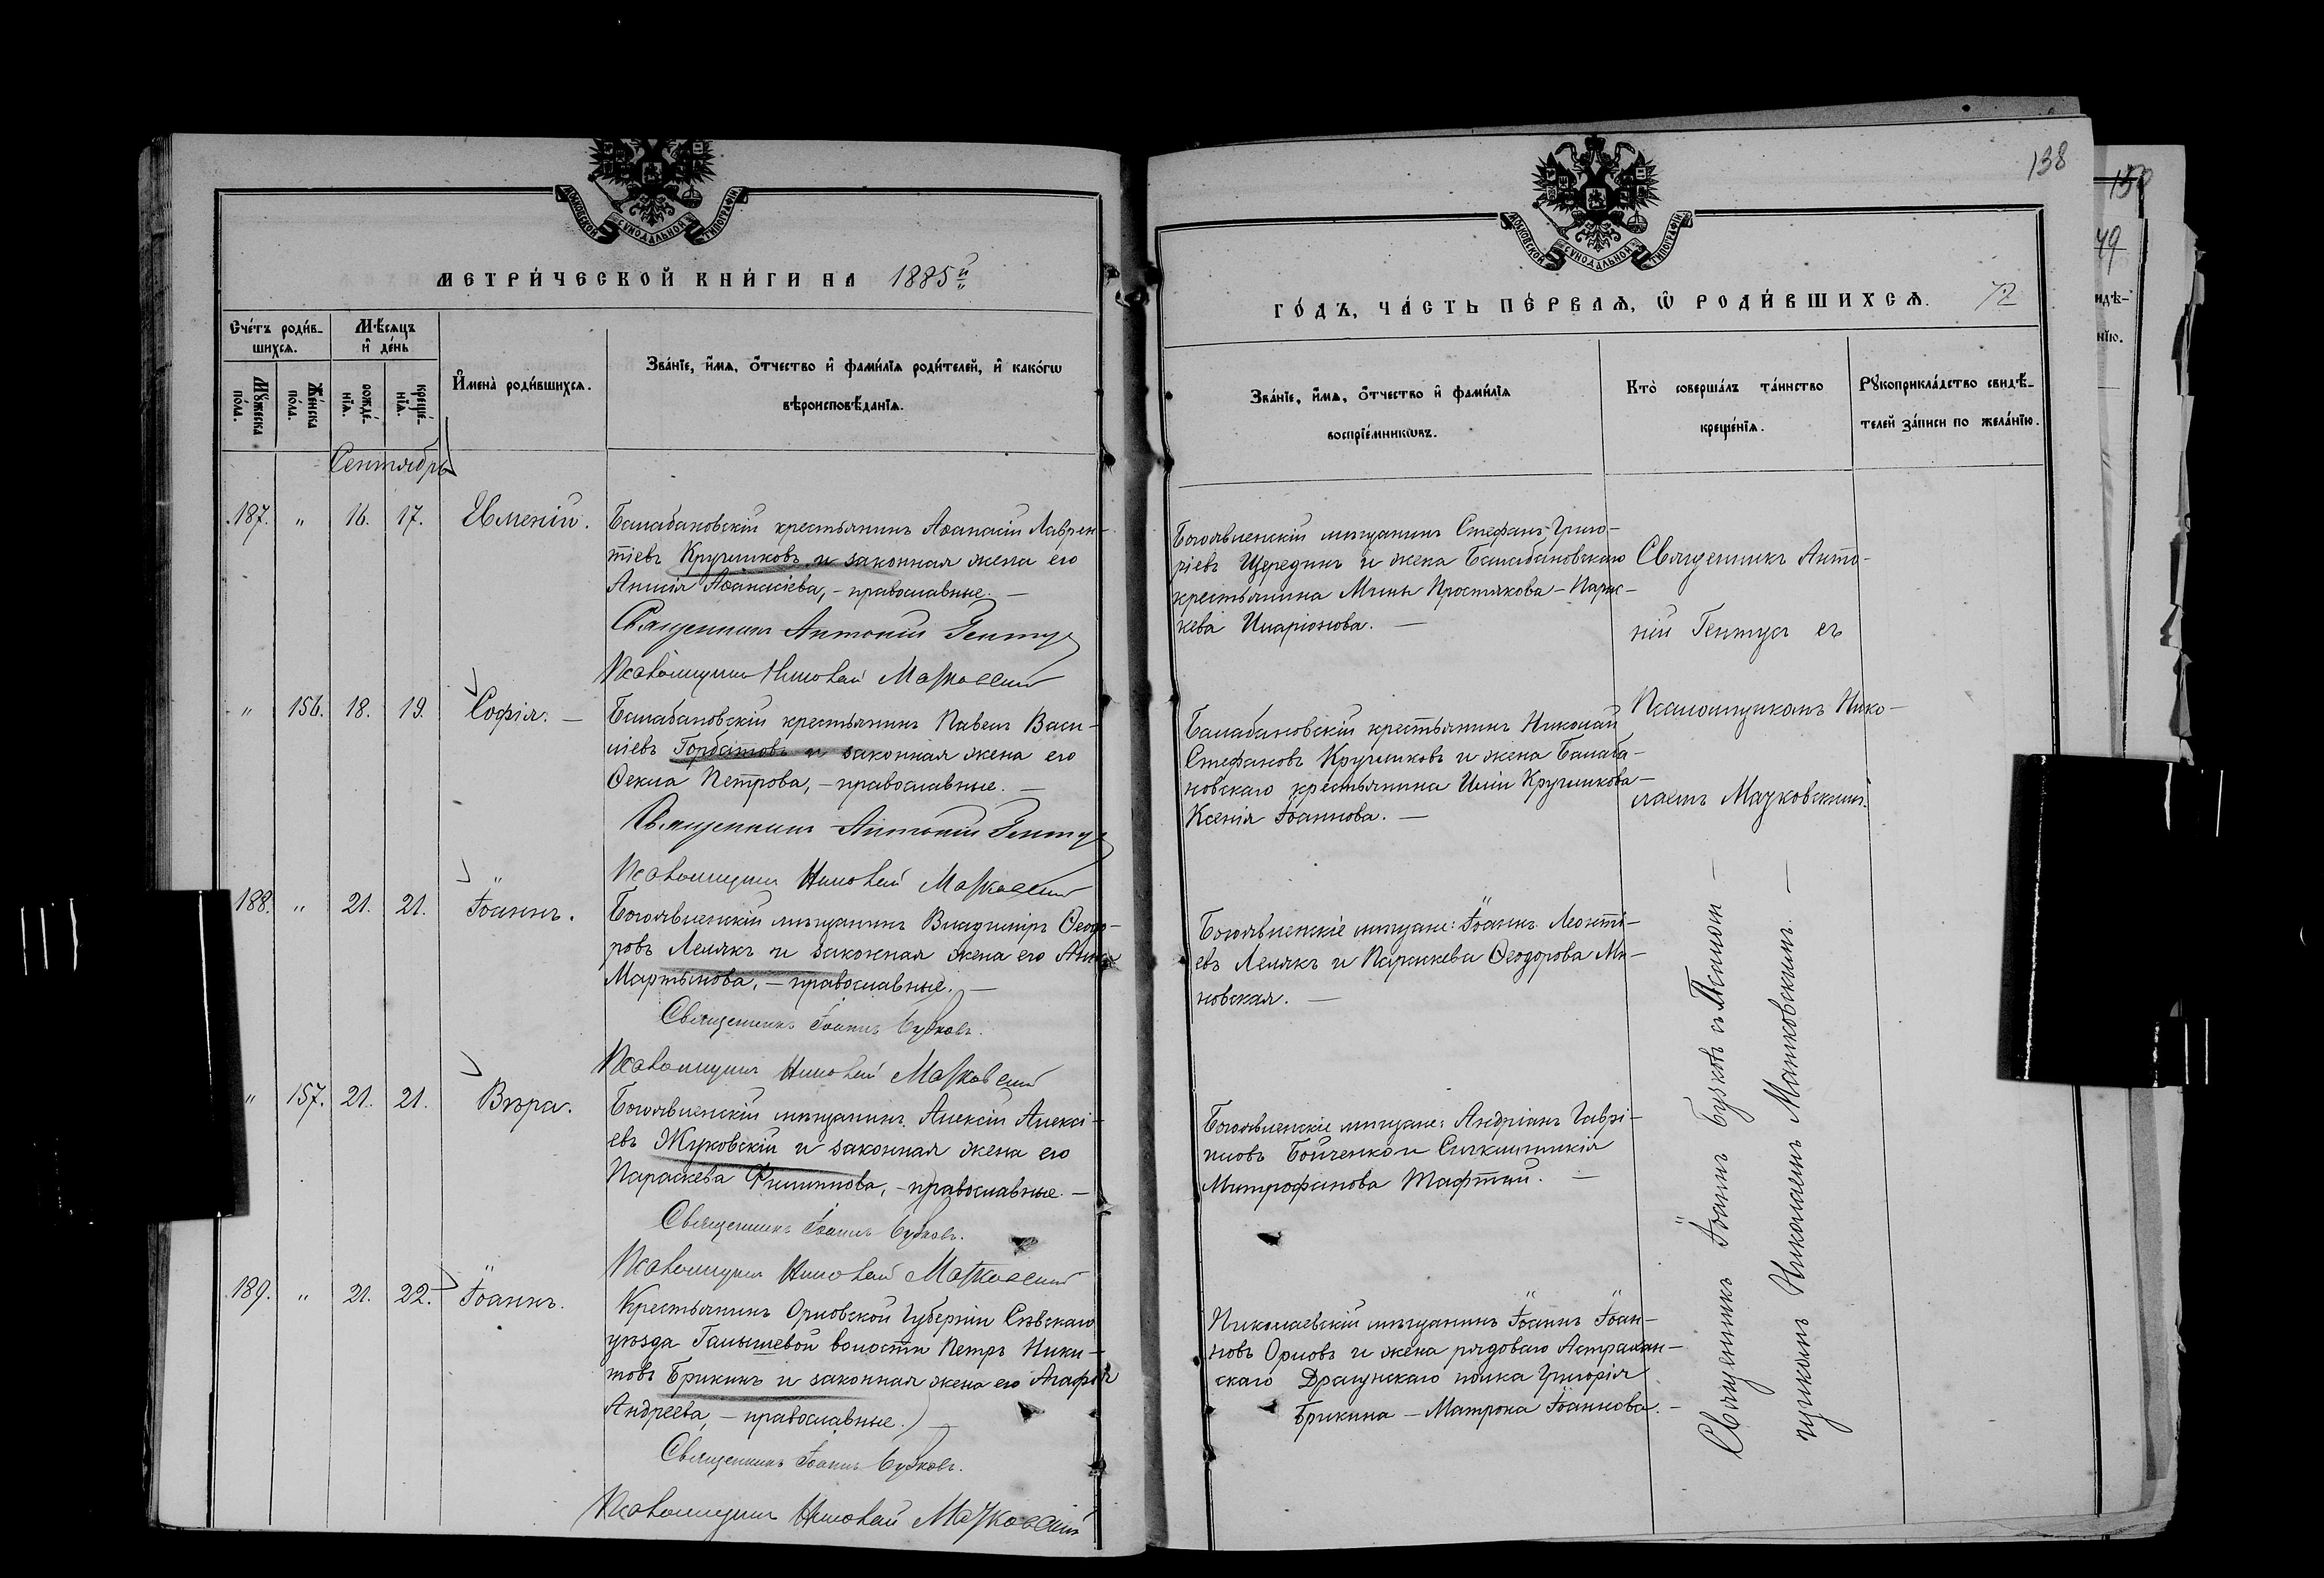 МОСКОВСКОЙ СѴНОДАЛЬНОЙ ТИПОГРАФІИ
МЕТРИ́ЧЕСКОЙ КНИ́ГИ НА 1885й
Сче́тъ роди́в-
шихсѧ.
Мѣ́сѧцъ
и҆ де́нь
Мꙋ́жеска
по́ла.
Же́нска
по́ла.
рожде́-
нїѧ.
креще́-
нїѧ.
И҆мена̀ роди́вшихсѧ.
Зва́нїе, и҆́мѧ, ѻ҆́тчество и҆ фами́лїѧ роди́телей, и҆ како́гѡ
вѣроисповѣ́данїѧ.
Сентябрь
187. " 16. 17. Евменій.
Балабановскій крестьянинъ Аѳанасій Лаврен-
тіевъ Кругликовъ и законная жена его
Анисія Аѳанасіева, - православные. -
Священникъ Антоній Гентуз
Псаломщикъ Николай Мацковскій
" 156. 18. 19. Софія. -
Балабановскій крестьянинъ Павелъ Васи-
ліевъ Горбатовъ и законная жена его
Ѳекла Петрова, - православные. -
Священникъ Антоній Гентуз
Псаломщикъ Николай Мацковскій
188. " 21. 21. Іоаннъ.
Богоявленскій мѣщанинъ Владиміръ Ѳеодо-
ровъ Лелякъ и законная жена его Анна
Мартынова, - православные. -
Священникъ Іоаннъ Бузковъ.
Псаломщикъ Николай Мацковскій
" 157. 21. 21. Вѣра.
Богоявленскій мѣщанинъ Алексій Алексі-
евъ Жуковскій и законная жена его
Параскева Филиппова, - православные. -
Священникъ Іоаннъ Бузковъ.
Псаломщикъ Николай Мацковскій
189. " 21. 22. Іоаннъ.
Крестьянинъ Орловской Губерніи Сѣвскаго
уѣзда Галышевой волости Петръ Ники-
товъ Брикинъ и законная жена его Агафія
Андреева, - православные.) -
Священникъ Іоаннъ Бузковъ.
Псаломщикъ Николай Мацковскій
138
МОСКОВСКОЙ СѴНОДАЛЬНОЙ ТИПОГРАФІИ
ГО́ДЪ, ЧА́СТЬ ПЕ́РВАѦ, Ѡ҆ РОДИ́ВШИХСѦ. 72
Зва́нїе, и҆́мѧ, ѻ҆́тчество и҆ фами́лїѧ
воспрїе́мникѡвъ.
Кто̀ соверша́лъ та́инство
креще́нїѧ.
Рꙋкоприкла́дство свидѣ́-
телей за́писи по жела́нїю.
Богоявленскій мѣщанинъ Стефанъ Григо-
ріевъ Щередин и жена Балабановскаго
крестьянина Мины Простякова - Парас-
кева Иларіонова. -
Священникъ Анто-
ній Гентуз съ
Псаломщикомъ Нико-
лаемъ Мацковскимъ.
Балабановскій крестьянинъ Николай
Стефановъ Кругликовъ и жена Балаба-
новскаго крестьянина Иліи Кругликова -
Ксенія Іоаннова. -
Богоявленскіе мѣщане: Іоаннъ Леонті-
евъ Лелякъ и Параскева Ѳеодорова Ми-
новская. -
Богоявленскіе мѣщане: Андріанъ Гаврі-
иловъ Бойченко и Синклитикія
Митрофанова Тафтай. -
Николаевскій мѣщанинъ Іоаннъ Іоан-
новъ Орловъ и жена рядоваго Астрахан-
скаго Драгунскаго полка Григорія
Брикина - Матрона Іоаннова. -
Священникъ Іоаннъ Бузковъ съ Псалом -
щикомъ Николаемъ Мацковскимъ. -
79
идѣ-
нїю.